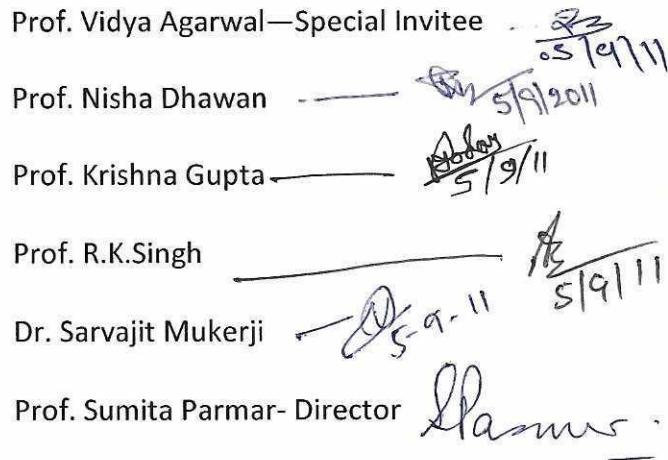 Prof. Vidya Agarwal—Special Invitee
05/9/11
Prof. Nisha Dhawan
5/9/2011
Prof. Krishna Gupta
5/9/11
Prof. R.K.Singh
5/9/11
Dr. Sarvajit Mukerji 5-9-11
Prof. Sumita Parmar- Director SParmar.